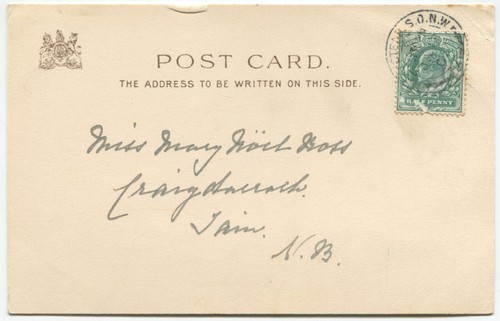 S.O. N.W.
POST CARD.
THE ADDRESS TO BE WRITTEN ON THIS SIDE.
HALFPENNY
Miss Mary Nöel Ross
Craigdarroch.
Tain.
N.B.